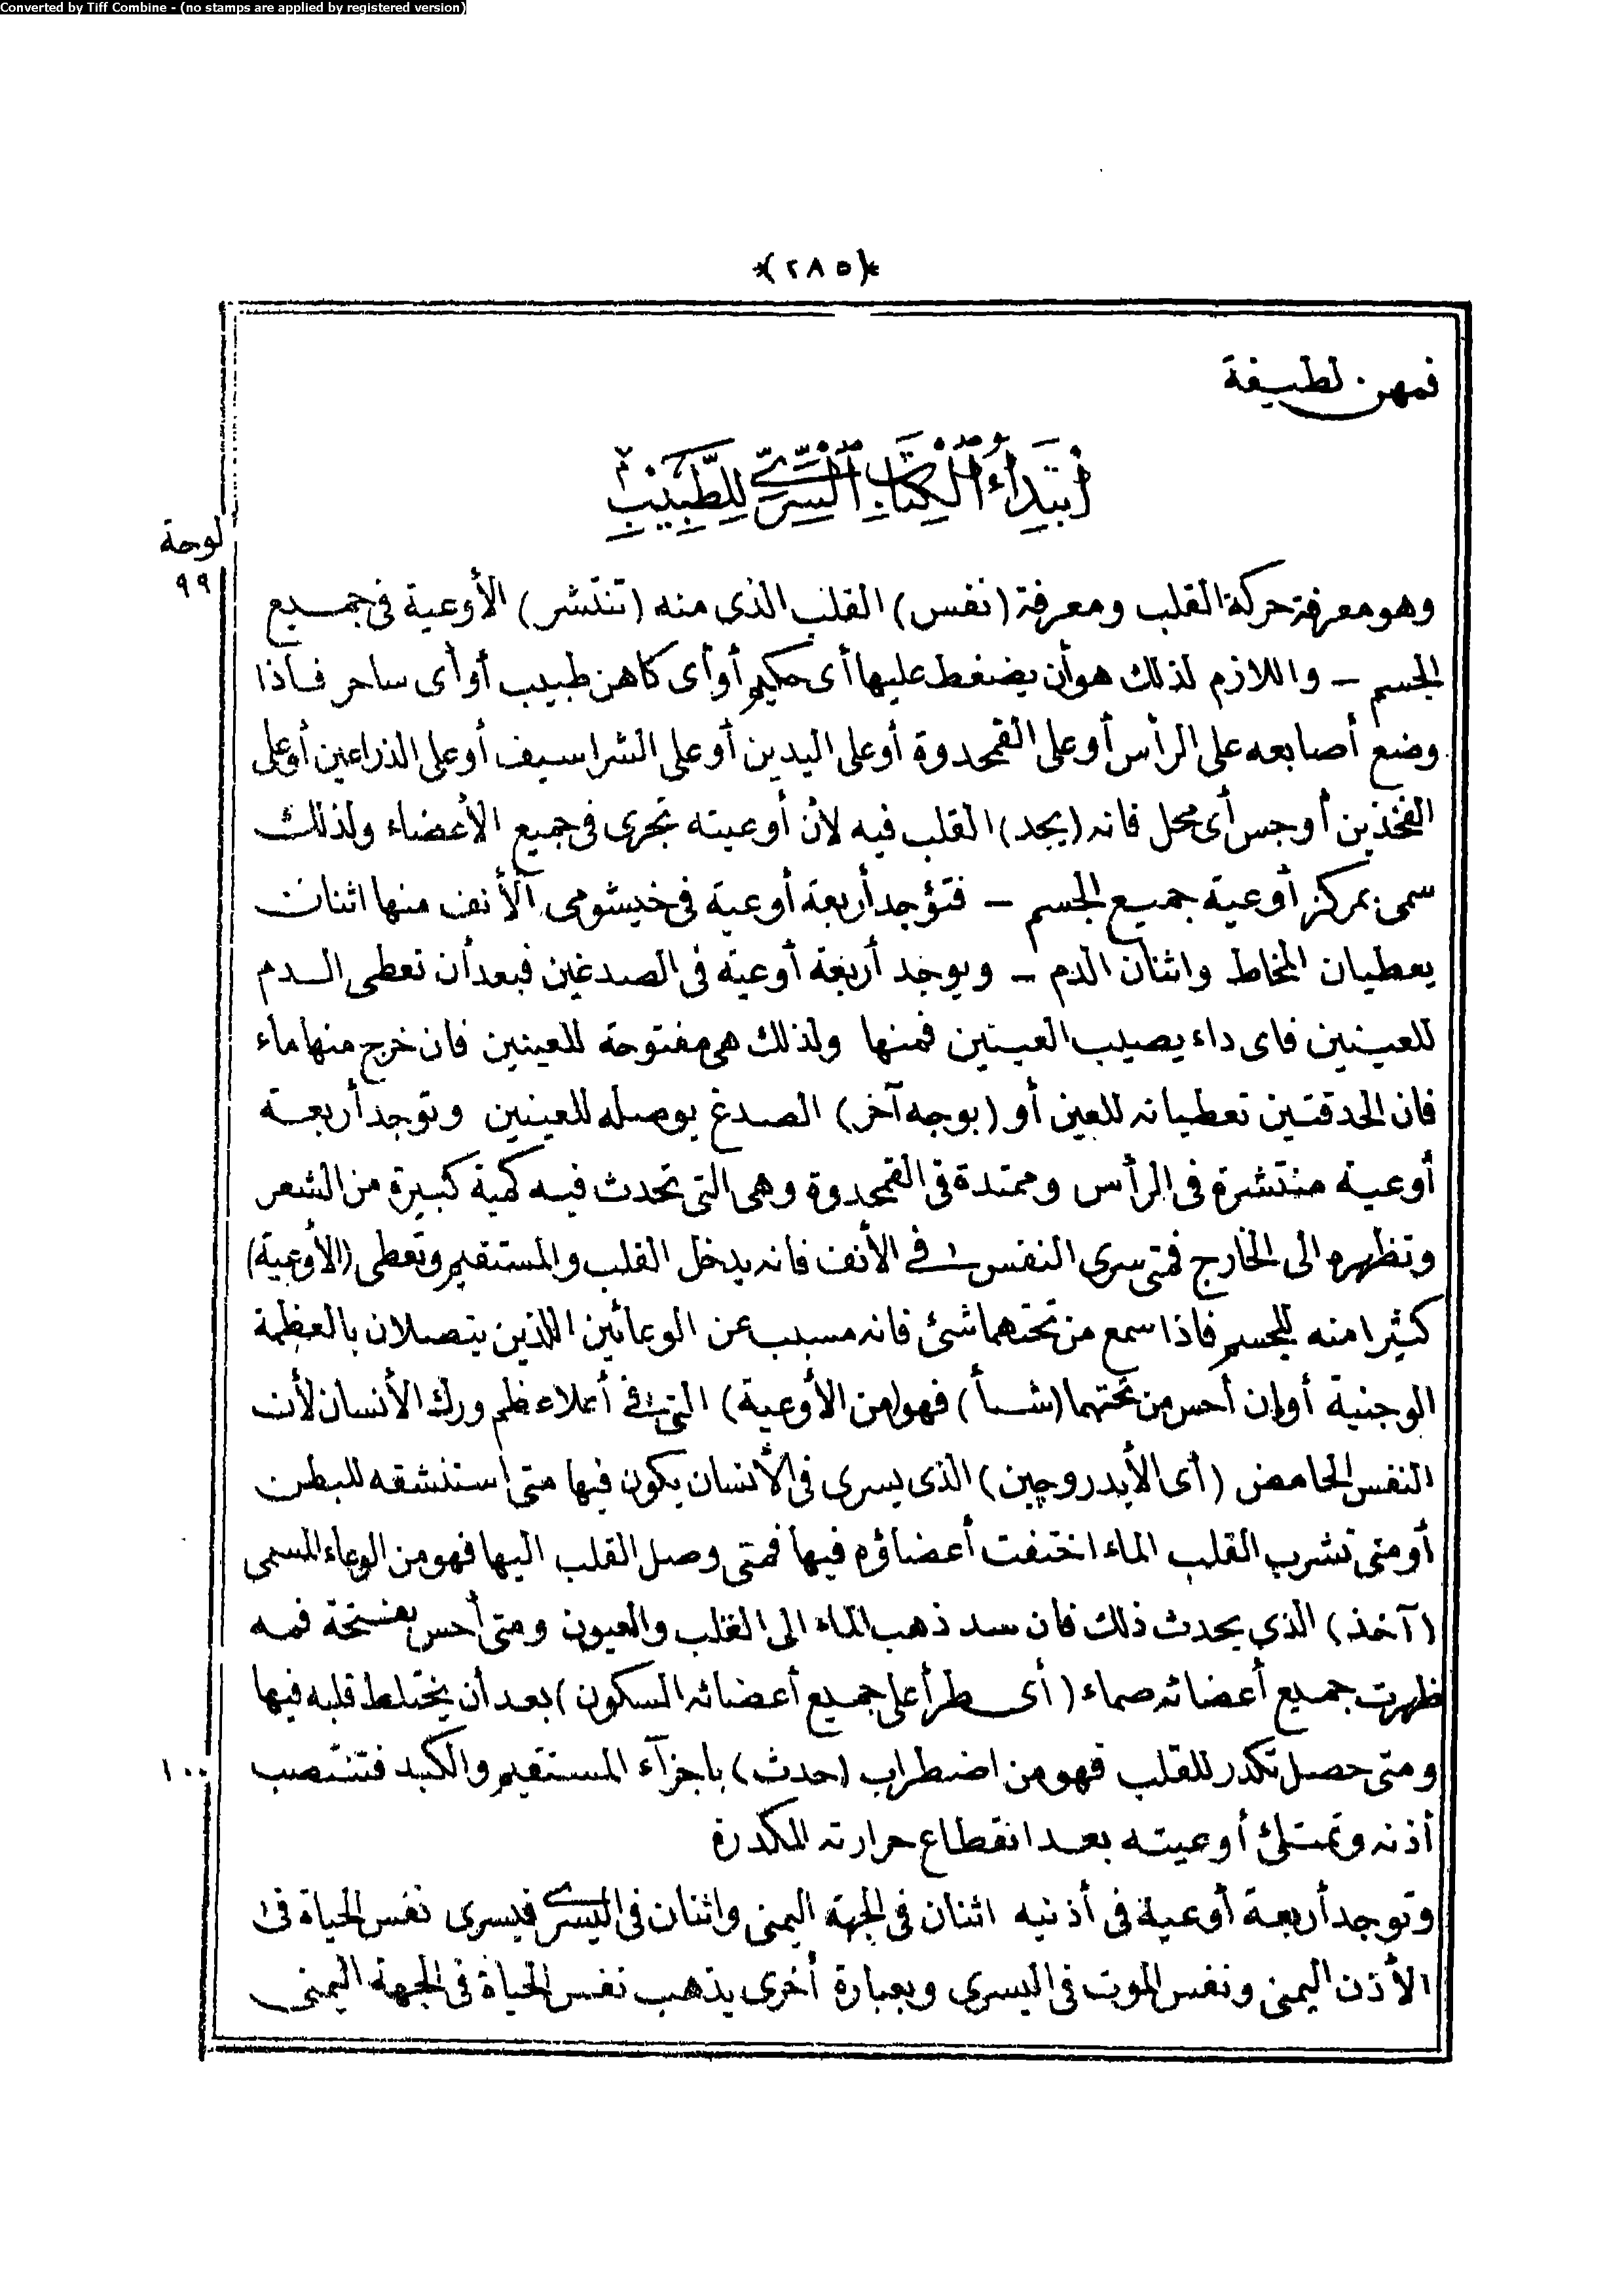 Converted by Tiff Combine - (no stamps are applied by registered version)
*(٢٨٥)*
فمهن لطيفة
ابتداء الكتاب السري للطبيب
لوحة
٩٩
وهو معرفة حركة القلب ومعرفة (نفس) القلب الذى منه (تنتشر) الأوعية فى جميع
الجسم – واللازم لذلك هو أن يضغط عليها أى حكيم أو أى كاهن طبيب أو أى ساحر فاذا
وضع أصابعه على الرأس أو على القمحدوة أو على اليدين أو على الشراسيف أو على الذراعين أو على
الفخذين أو جس أى محل فانه (يجد) القلب فيه لأن أوعيته تجرى فى جميع الأعضاء ولذلك
سمى بمركز أوعية جميع الجسم – فتوجد أربعة أوعية فى خيشومى الأنف منها اثنان
يعطيان المخاط واثنان الدم – ويوجد أربعة أوعية فى الصدغين فبعد أن تعطى الدم
للعينين فاى داء يصيب العينين فمنها ولذلك هى مفتوحة للعينين فان خرج منها ماء
فان الحدقتين تعطيانه للعين أو (بوجه آخر) الصدغ يوصله للعينين وتوجد أربعة
أوعية منتشرة فى الرأس وممتدة فى القمحدوة وهى التى تحدث فيه كمية كبيرة من الشعر
وتظهره الى الخارج فمتى سرى النفس فى الأنف فانه يدخل القلب والمستقيم وتعطى (الأوعية)
كثيرا منه للجسم فاذا سمع من تحتهما شئ فانه مسبب عن الوعائين اللذين يتصلان بالعظمة
الوجنية أو إن أحس من تحتهما (شيأ) فهو (من الأوعية) التى فى أعلاء عظم ورك الأنسان لأن
النفس الحامض (أى الأيدروجين) الذى يسرى فى الأنسان يكون فيها متى استنشقه للبطن
أو متى تشرب القلب الماء اختفت أعضاؤه فيها فمتى وصل القلب اليها فهو من الوعاء المسمى
(آخذ) الذي يحدث ذلك فان سد ذهب الماء الى القلب والعيون ومتى أحس بفتحة فمه
ظهرت جميع أعضائه صماء (أى طرأ على جميع أعضائه السكون) بعد أن يختلط قلبه فيها
١٠٠
ومتى حصل تكدر للقلب فهو من اضطراب (حدث) باجزآء المستقيم والكبد فتنتصب
أذنه وتمتلئ أوعيته بعد انقطاع حرارته المكدرة
وتوجد أربعة أوعية فى أذنيه اثنان فى الجهة اليمنى واثنان فى اليسرى فيسرى نفس الحياة فى
الأذن اليمنى ونفس الموت فى اليسرى وبعبارة أخرى يذهب نفس الحياة فى الجهة اليمنى